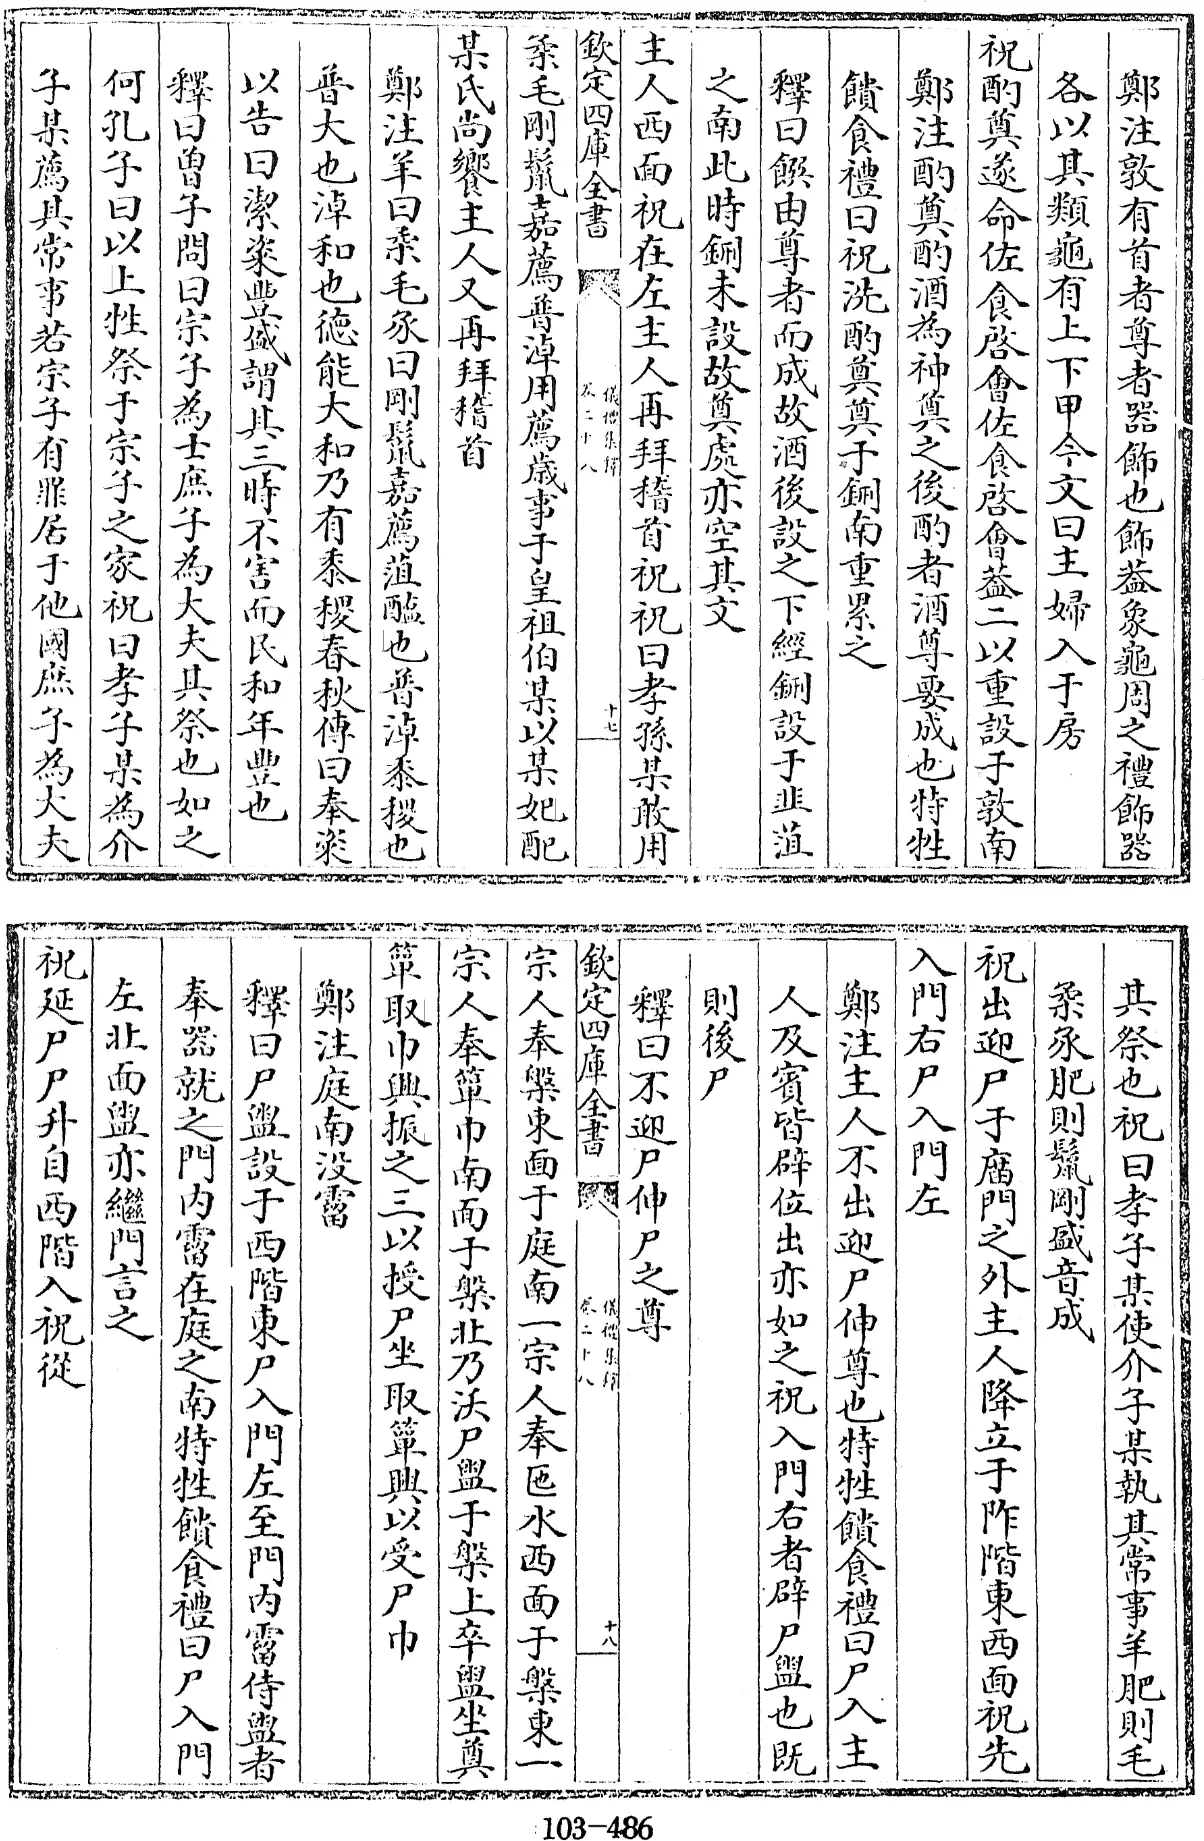 鄭注敦有首者尊者器飾也飾葢象龜周之禮飾器
各以其類龜有上下甲今文曰主婦入于房
祝酌奠遂命佐食啓㑹佐食啓㑹葢二以重設于敦南
鄭注酌奠酌酒為神奠之後酌者酒尊要成也特牲
饋食禮曰祝洗酌奠奠于鉶南重累之
釋曰饌由尊者而成故酒後設之下經鉶設于韭菹
之南此時鉶未設故奠處亦空其文
主人西面祝在左主人再拜稽首祝祝曰孝孫某敢用
欽定四庫全書
儀禮集釋
卷二十八
十七
柔毛剛鬛嘉薦普淖用薦歲事于皇祖伯某以某妃配
某氏尚饗主人又再拜稽首
鄭注羊曰柔毛豕曰剛鬛嘉薦菹醢也普淖黍稷也
普大也淖和也徳能大和乃有黍稷春秋傳曰奉粢
以告曰潔粢豐盛謂其三時不害而民和年豐也
釋曰曽子問曰宗子為士庶子為大夫其祭也如之
何孔子曰以上牲祭于宗子之家祝曰孝子某為介
子某薦其常事若宗子有罪居于他國庶子為大夫
其祭也祝曰孝子某使介子某執其常事羊肥則毛
柔豕肥則鬛剛盛音成
祝出迎尸于廟門之外主人降立于阼階東西面祝先
入門右尸入門左
鄭注主人不出迎尸伸尊也特牲饋食禮曰尸入主
人及賓皆辟位出亦如之祝入門右者辟尸盥也既
則後尸
釋曰不迎尸伸尸之尊
欽定四庫全書
儀禮集釋
卷二十八
十八
宗人奉槃東面于庭南一宗人奉匜水西面于槃東一
宗人奉簞巾南面于槃北乃沃尸盥于槃上卒盥坐奠
簞取巾興振之三以授尸坐取簞興以受尸巾
鄭注庭南没霤
釋曰尸盥設于西階東尸入門左至門内霤侍盥者
奉器就之門内霤在庭之南特牲饋食禮曰尸入門
左北面盥亦繼門言之
祝延尸尸升自西階入祝從
103-486